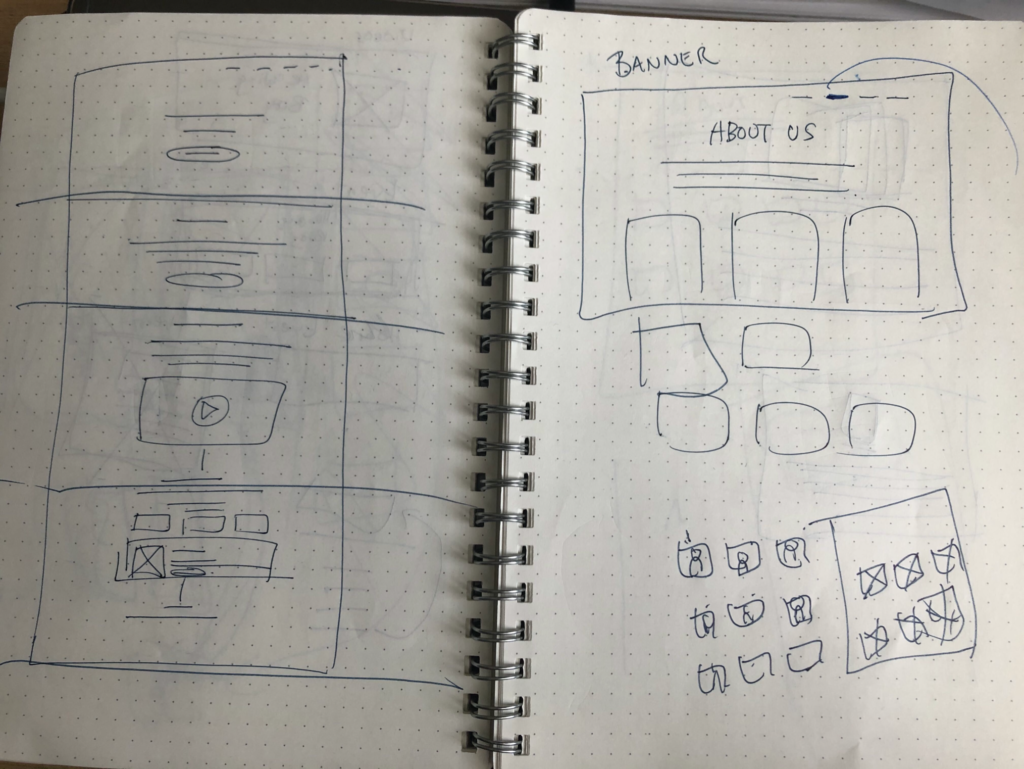 BANNER
ABOUT US